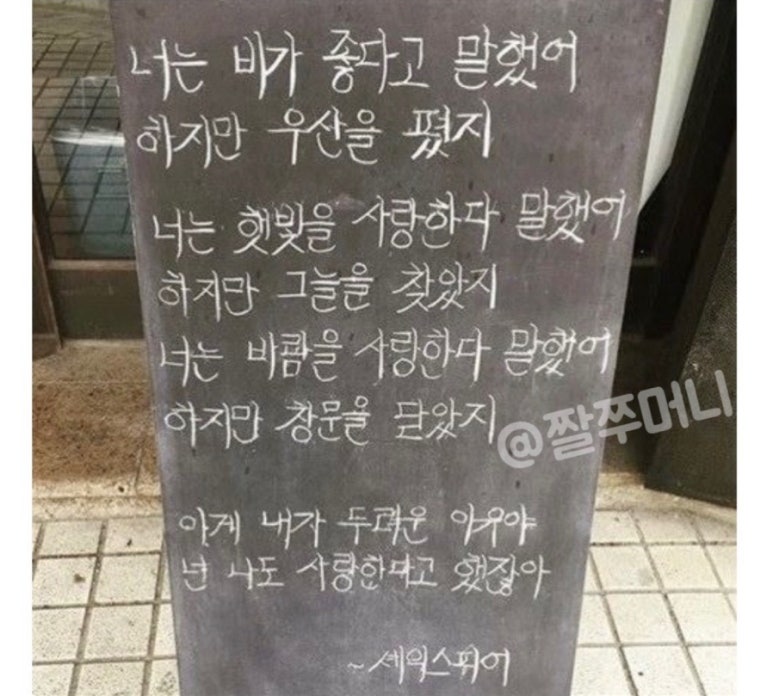 너는 비가 좋다고 말했어
하지만 우산을 폈지
너는 햇빛을 사랑한다 말했어
하지만 그늘을 찾았지
너는 바람을 사랑한다 말했어
하지만 창문을 닫았지
@짤쭈머니
이게 내가 두려운 이유야
넌 나도 사랑한다고 했잖아
~셰익스피어